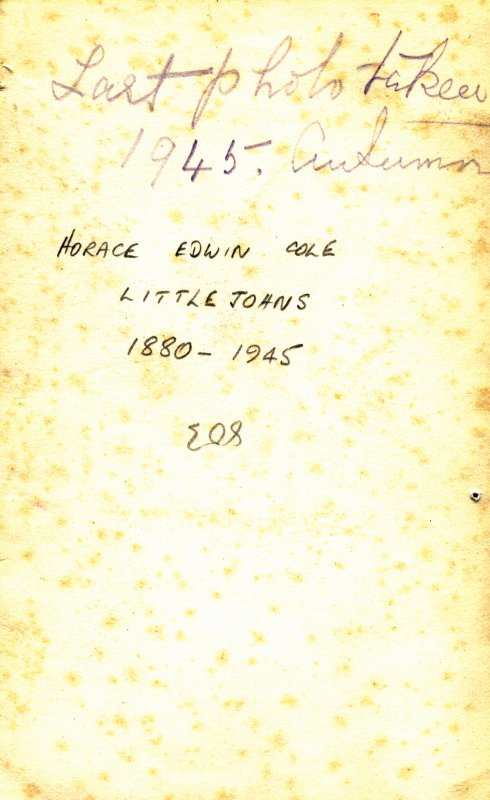 Last photo taken
1945. Autumn
HORACE EDWIN COLE
LITTLEJOHNS
1880 - 1945